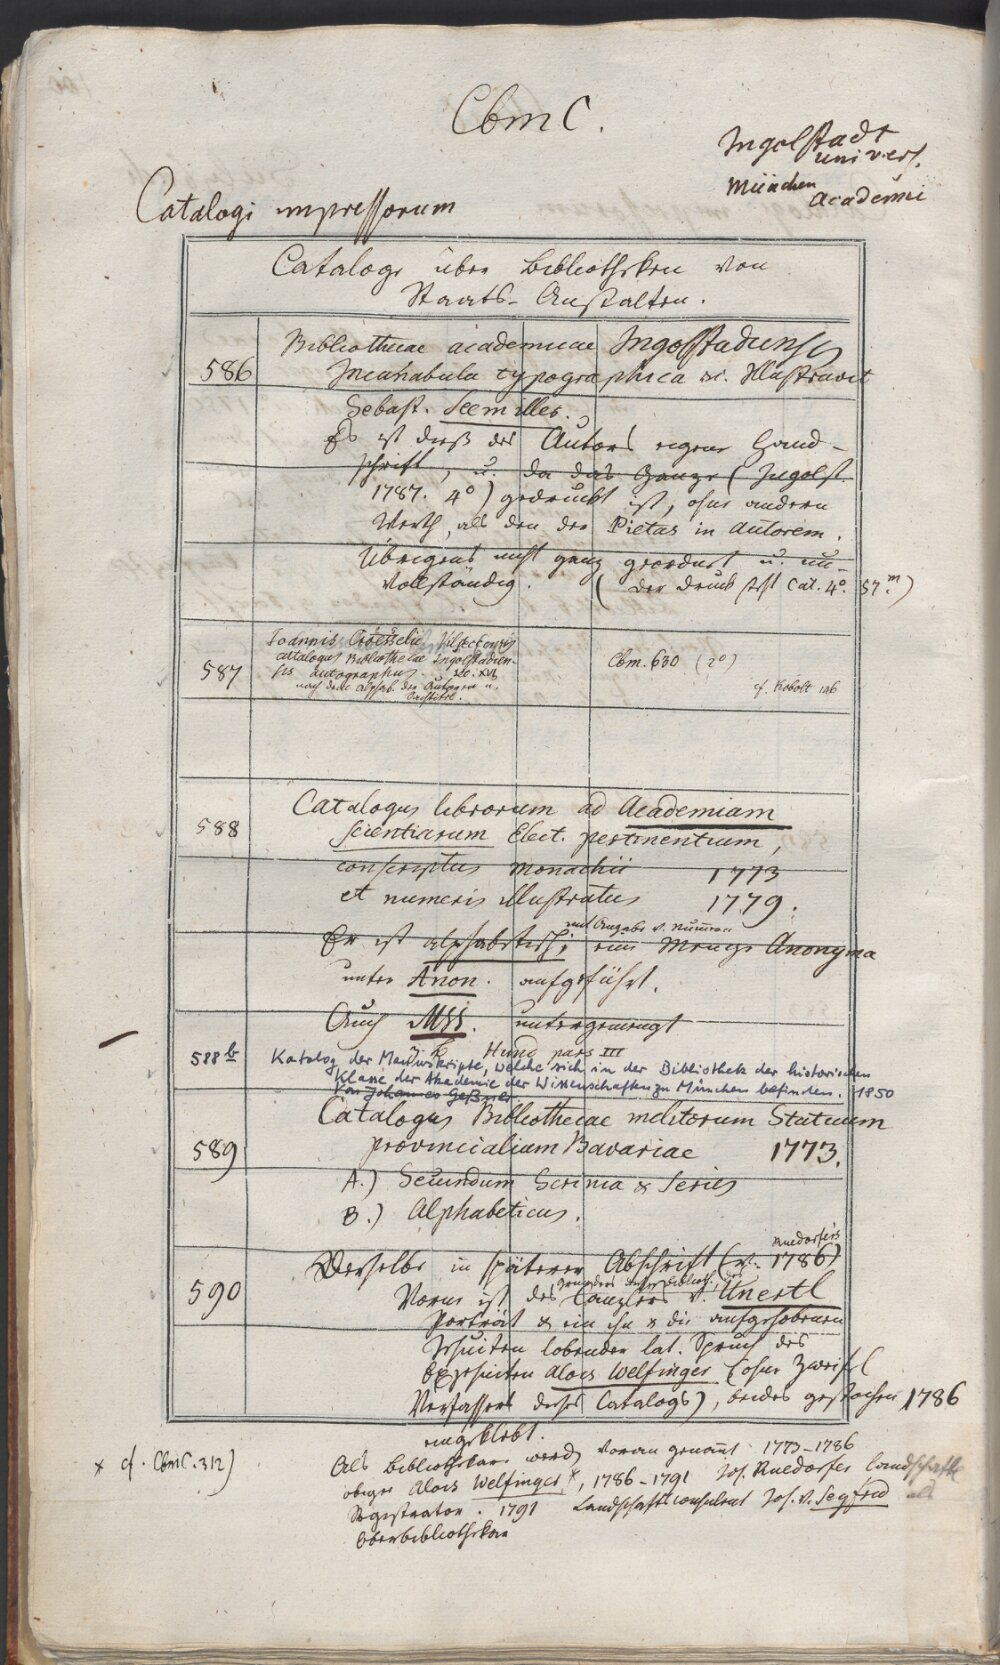 CbmC.
Ingolstadt
univers.
München
Academie
Catalogi impressorum
Cataloge über Bibliotheken von
Staats-Anstalten.
586
Bibliothecae academicae Ingolstadiensis
Incunabula typographica &c. Illustravit
Sebast. Seemiller.
Es ist dieß des Autors eigene Hand-
schrift, u. da das Ganze (Ingolst.
1787. 4°) gedruckt ist, ohne andern
Werth, als den der Pietas in autorem.
Übrigens nicht ganz geordnet u. un-
vollständig. (Der Druck steht Cat. 4°. 57.m)
587
Joannis Croesselii
catalogus Bibliothecae Ingolstadien-
sis autographus Sec. XVI
nach dem Alphab. der Autoren u.
Cbm. 630 (2°)
cf. Kobolt 146
588
Catalogus librorum ad Academiam
scientiarum Elect. pertinentium,
conscriptus Monachii 1773
et numeris illustratus 1779.
mit Angabe v. Numern
Er ist alphabetisch; eine Menge Anonyma
unter Anon. aufgeführt.
Auch MSS. untergemengt
z. B. Hund pars III
588 b
Katalog der Manuskripte, welche sich in der Bibliothek der historischen
Klasse der Akademie der Wissenschaften zu München befinden. 1850
Von Johannes Geßner.
589
Catalogus Bibliothecae inclitorum Statuum
provincialium Bavariae 1773.
A.) Secundum Scrinia & Series
B.) Alphabeticus.
590
Ruedorfers
Derselbe in späterer Abschrift (v. 1786)
Gründers dieser Biblioth.
Vorne ist des Canzlers v. Unertl
Porträt & ein ihn & die aufgehobenen
Jesuiten lobender lat. Spruch des
Exjesuiten Alois Welfinger (ohne Zweifel
Verfassers dieses Catalogs), beides gestochen 1786
eingeklebt.
* cf. CbmC. 312)
Als Bibliothekare werden voran genannt 1773-1786
obiger Alois Welfinger*, 1786-1791 Jos. Ruedorfer Landschafts
Registrator. 1791 Landschaftsconsulent Jos. v. Seyfried als
Oberbibliothekar